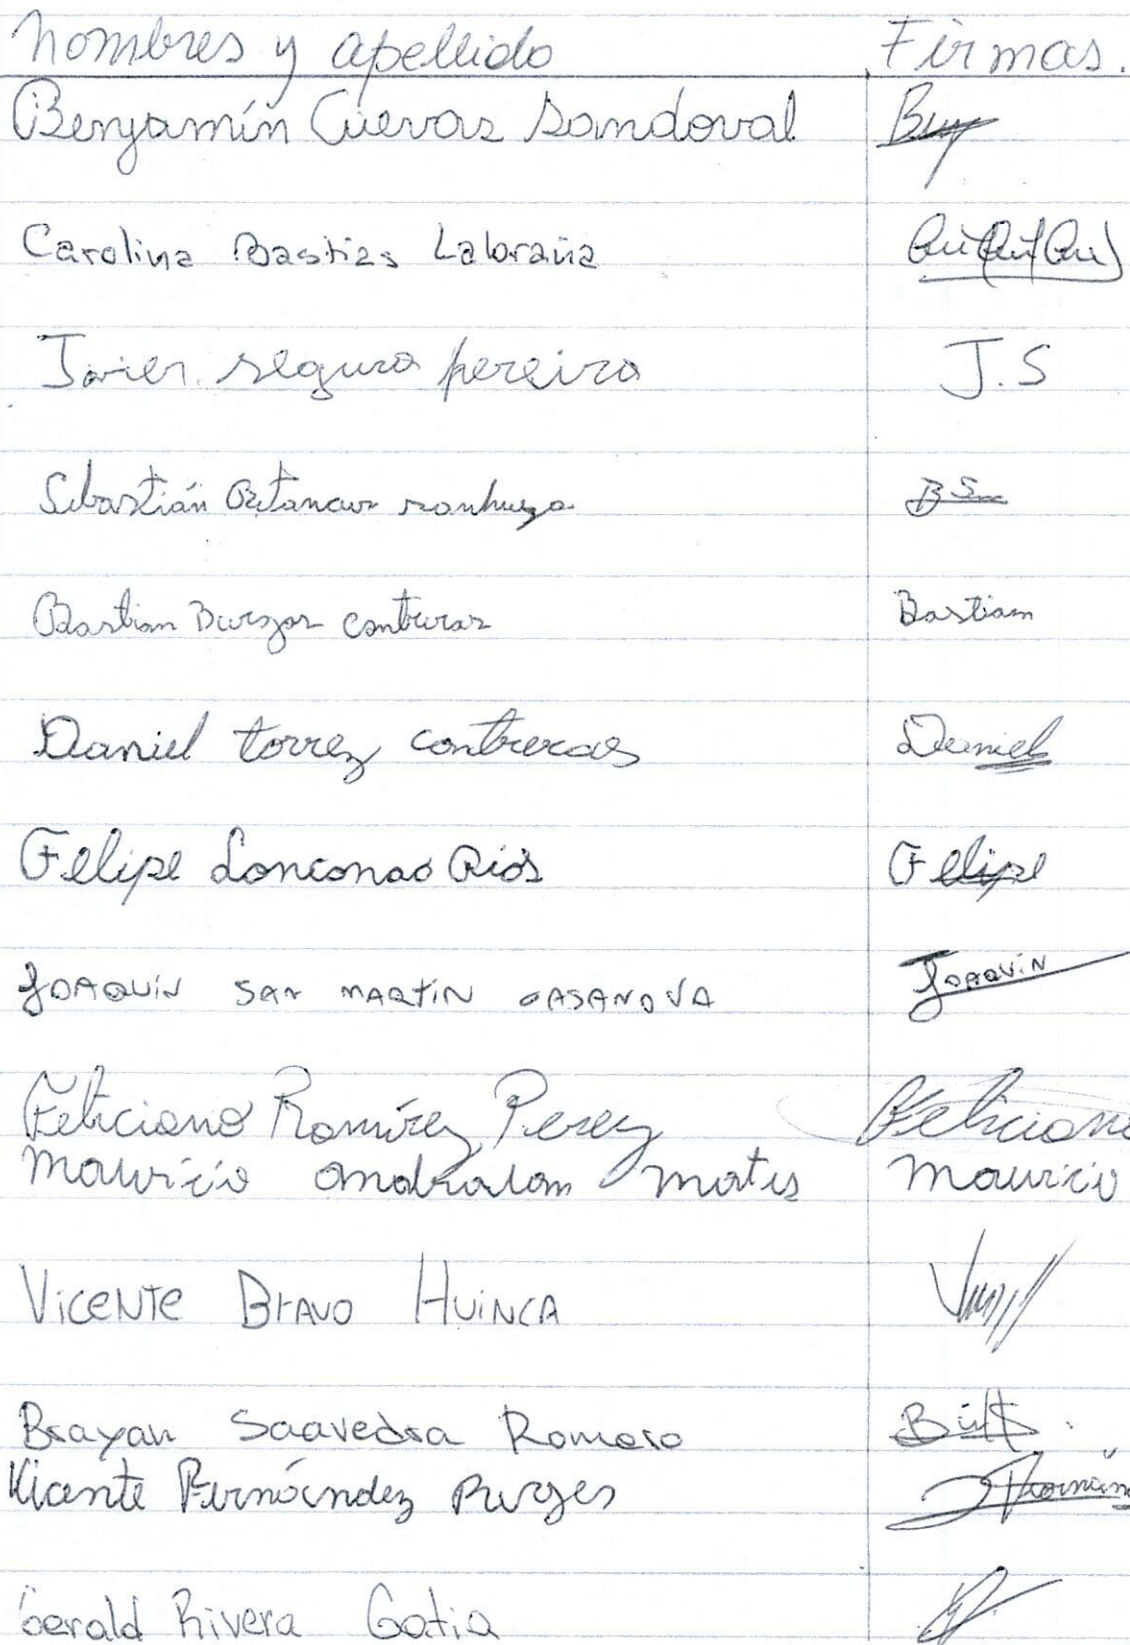 Nombres y apellido Firmas.
Benjamín Cuevas Sandoval
Carolina Bastias Labraña
Javier segura pereira J.S
Sebastián Betancur sanhueza BS
Bastian Burgos contreras Bastian
Daniel torrez contreras Daniel
Felipe Lonconao Ríos Felipe
JOAQUÍN SAN MARTÍN CASANOVA JOAQUÍN
Feliciano Ramírez Perez Feliciano
Mauricio matis Mauricio
VICENTE BRAVO HUINCA
Brayan Saavedra Romero
Vicente Fernández
Gerald Rivera Gatia